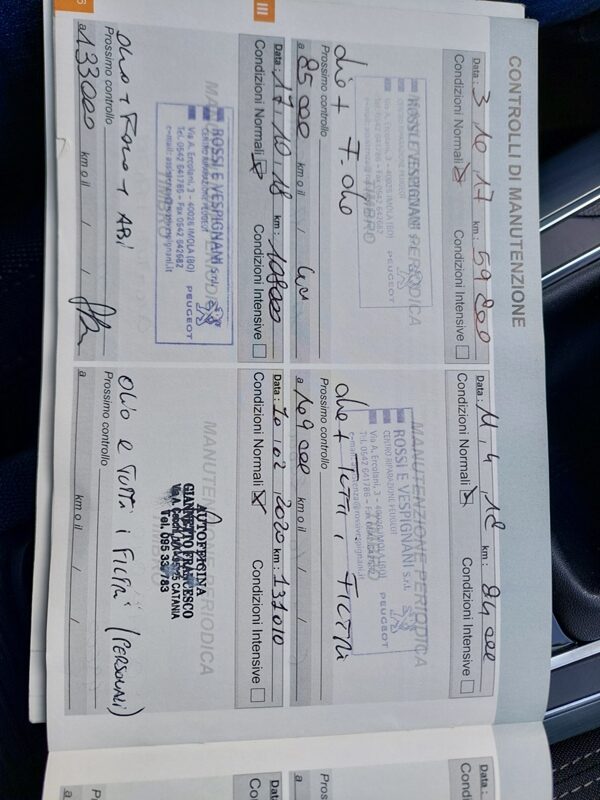 CONTROLLI DI MANUTENZIONE
Data : 3 10 17 km : 59 200
Condizioni Normali Condizioni Intensive
MANUTENZIONE PERIODICA
ROSSI E VESPIGNANI s.r.l.
CENTRO RIPARAZIONE PEUGEOT
TIMBRO
PEUGEOT
Olio + F. olio
Prossimo controllo
a 85 000 km o il / /
Data : 11 , 4 , 18 km : 84 000
Condizioni Normali Condizioni Intensive
MANUTENZIONE PERIODICA
ROSSI E VESPIGNANI s.r.l.
CENTRO RIPARAZIONE PEUGEOT
Via A. Ercolani, 3 - 40026 IMOLA (BO)
Tel. 0542 641786 - Fax
PEUGEOT
Olio + TUTTI i FILTRI
Prossimo controllo
a 109 000 km o il / /
III
Data : 17 , 10 , 18 km : 108000
Condizioni Normali Condizioni Intensive
MANUTENZIONE PERIODICA
ROSSI E VESPIGNANI s.r.l.
CENTRO RIPARAZIONE PEUGEOT
Via A. Ercolani, 3 - 40026 IMOLA (BO)
Tel. 0542 641786 - Fax 0542 642682
PEUGEOT
Prossimo controllo
a 133000 km o il / /
Data : 20 , 02 , 2020 km : 131010
Condizioni Normali Condizioni Intensive
MANUTENZIONE PERIODICA
AUTOFFICINA
GIANNETTO FRANCESCO
CATANIA
Tel. 095
Olio e TUTTI i FILTRI (PERSONALI)
Prossimo controllo
a km o il / /
Data :
Condizioni
Prossimo
a
Data :
Condizioni
Prossimo
a